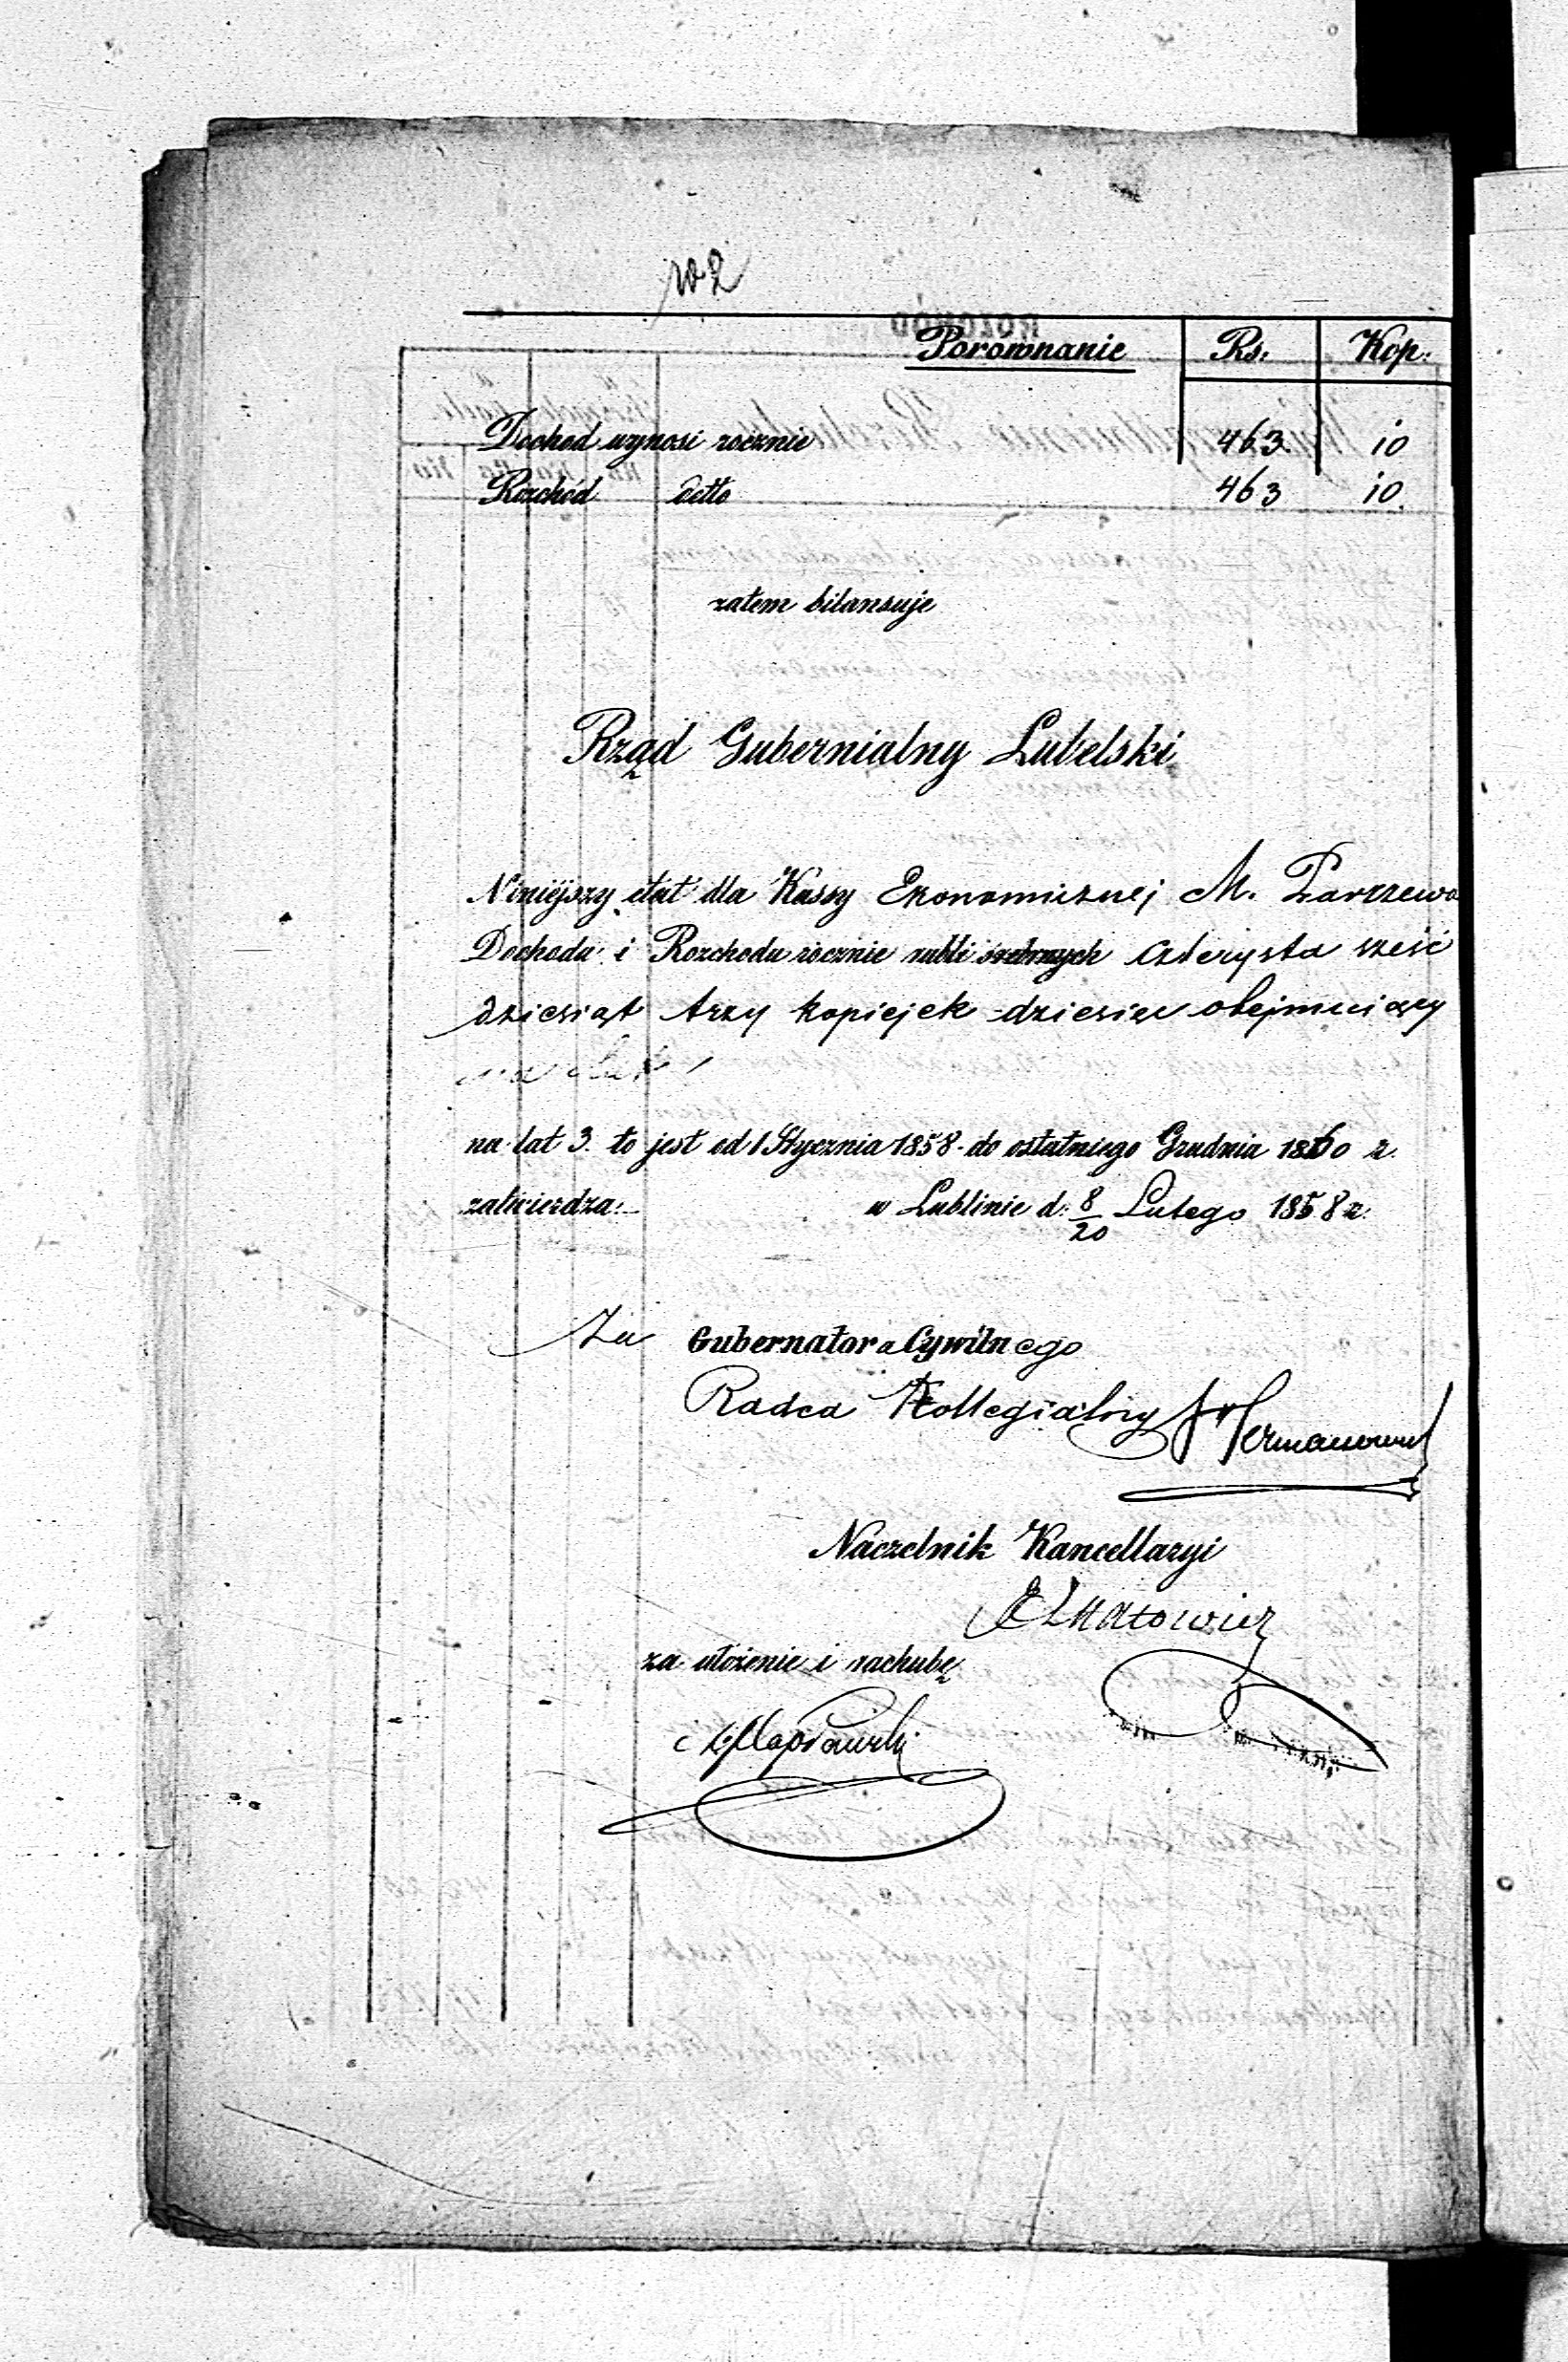 102
Porownanie Rs: Kop:
Dochod wynosi rocznie 463. 10
Rozchód detto 463 10.
zatem bilansuje
Rząd Gubernialny Lubelski
Niniéjszy etat dla Kassy Ekonomicznej M. Parczewa
Dochodu i Rozchodu rocznie rubli srebrnych czterysta sześć
dziesiąt trzy kopiejek dziesięć obejmuiący
na lat 3. to jest od 1 Stycznia 1858 do ostatniego Grudnia 1860 r.
zatwierdza. w Lublinie d. 8/20 Lutego 1858 r.
Za Gubernatora Cywilnego
Radca Kollegialny
Naczelnik Kancellaryi
za ułożenie i rachubę